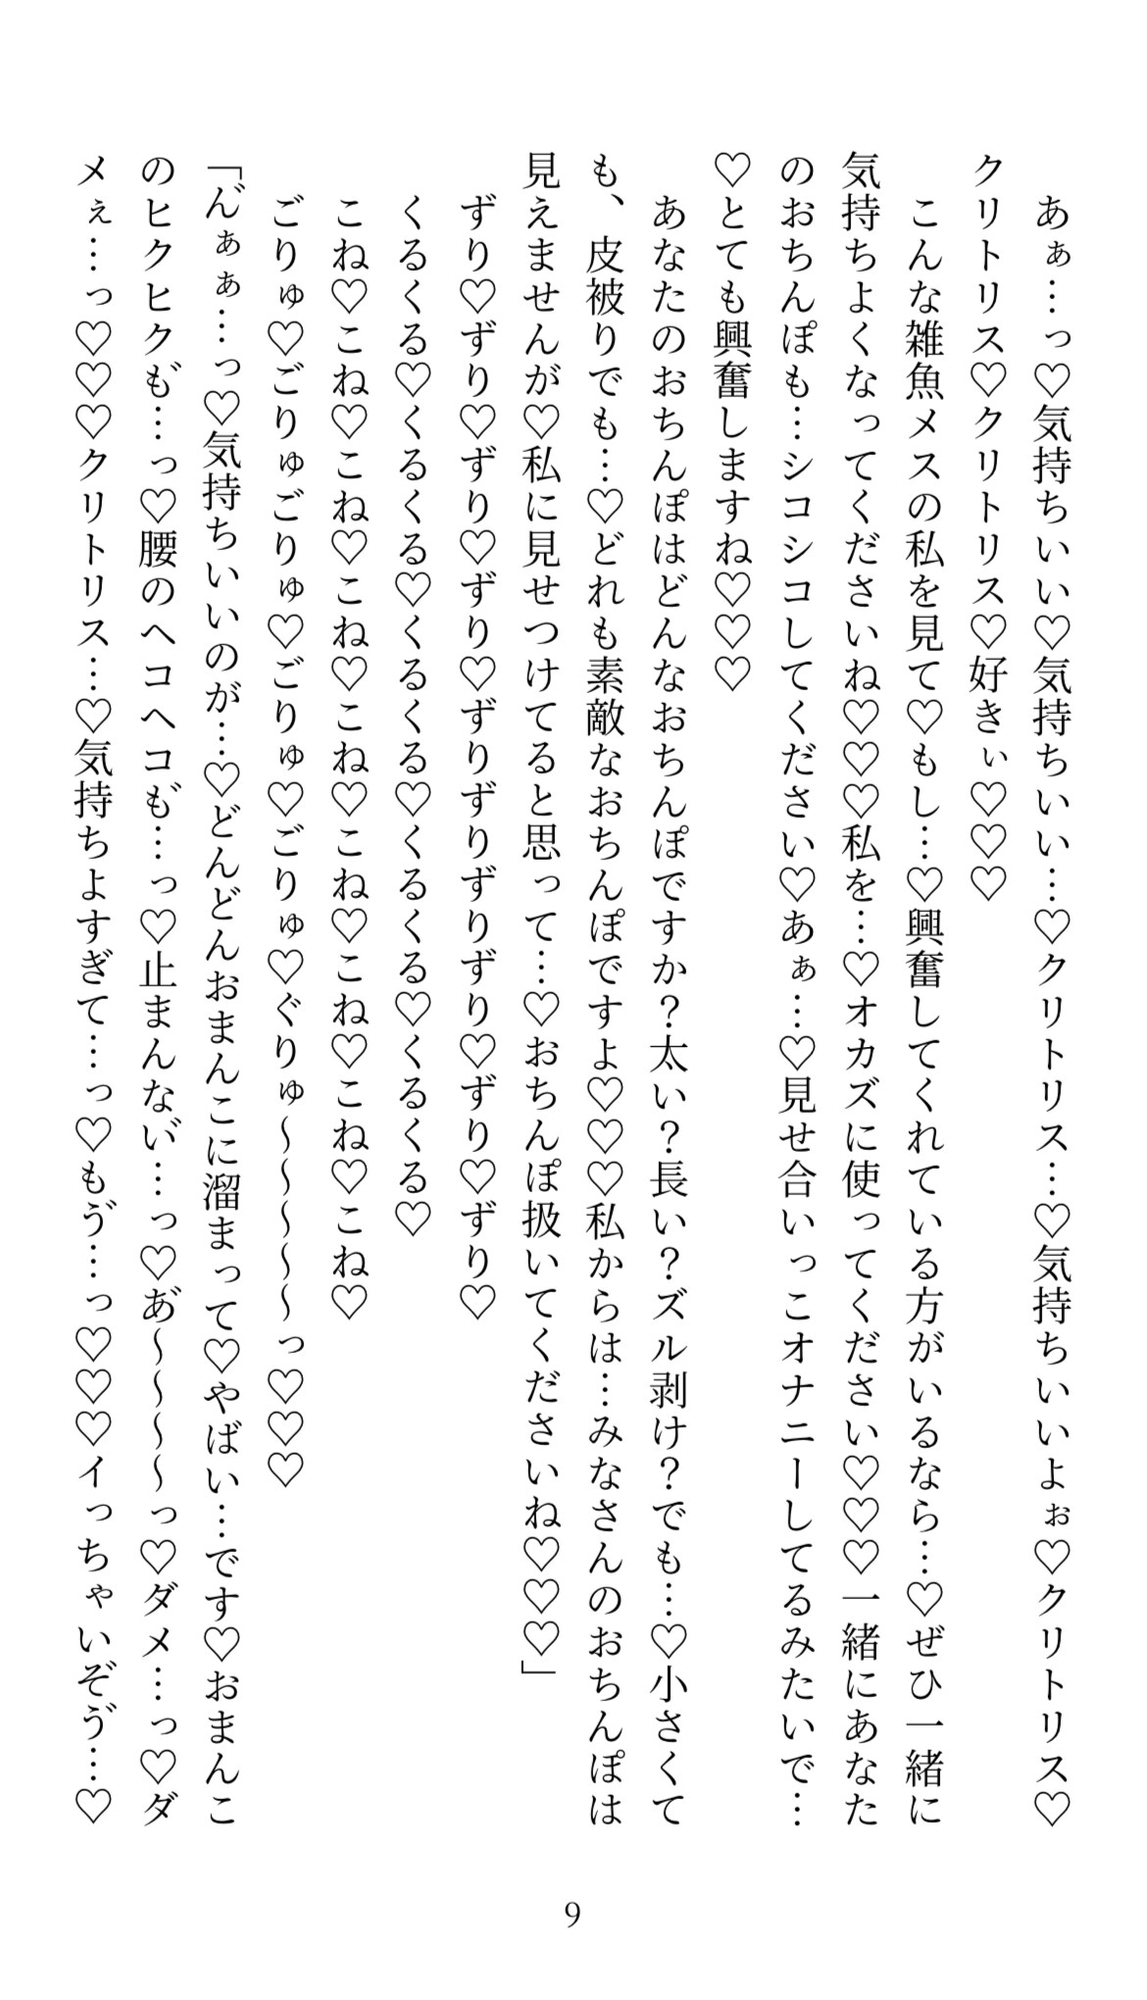 あぁ…っ♡気持ちいい♡気持ちいい…♡クリトリス…♡気持ちいいよぉ♡クリトリス♡
クリトリス♡クリトリス♡好きぃ♡♡♡
こんな雑魚メスの私を見て♡もし…♡興奮してくれている方がいるなら…♡ぜひ一緒に
気持ちよくなってくださいね♡♡♡私を…♡オカズに使ってください♡♡♡一緒にあなた
のおちんぽも…シコシコしてください♡あぁ…♡見せ合いっこオナニーしてるみたいで…
♡とても興奮しますね♡♡♡
あなたのおちんぽはどんなおちんぽですか？太い？長い？ズル剥け？でも…♡小さくて
も、皮被りでも…♡どれも素敵なおちんぽですよ♡♡♡私からは…みなさんのおちんぽは
見えませんが♡私に見せつけてると思って…♡おちんぽ扱いてくださいね♡♡♡」
ずり♡ずり♡ずり♡ずり♡ずりずりずりずり♡ずり♡ずり♡
くるくる♡くるくる♡くるくる♡くるくる♡くるくる♡
こね♡こね♡こね♡こね♡こね♡こね♡こね♡こね♡こね♡
ごりゅ♡ごりゅごりゅ♡ごりゅ♡ごりゅ♡ぐりゅ～～～～～っ♡♡♡
「ん゛ぁぁ…っ♡気持ちいいのが…♡どんどんおまんこに溜まって♡やばい…です♡おまんこ
のヒクヒクも゛…っ♡腰のヘコヘコも゛…っ♡止まんない゛…っ♡あ゛～～～～っ♡ダメ…っ♡ダ
メぇ…っ♡♡♡クリトリス…♡気持ちよすぎて…っ♡もう゛…っ♡♡♡イっちゃいぞう゛…♡
9